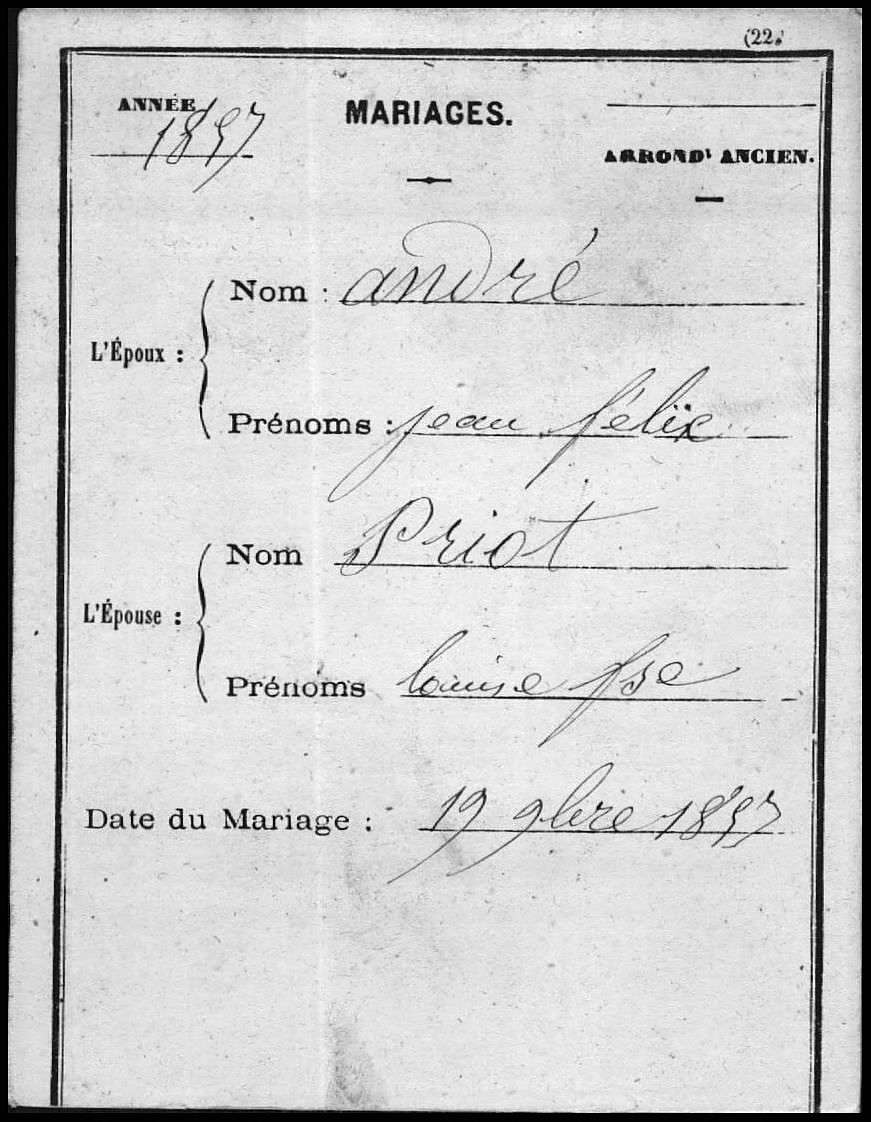 (22.
ANNÉE
1857
MARIAGES.
ARRONDt ANCIEN.
L'Époux :
Nom : andré
Prénoms : jean félix
L'Épouse :
Nom Priot
Prénoms louise fse
Date du Mariage : 19 9bre 1857